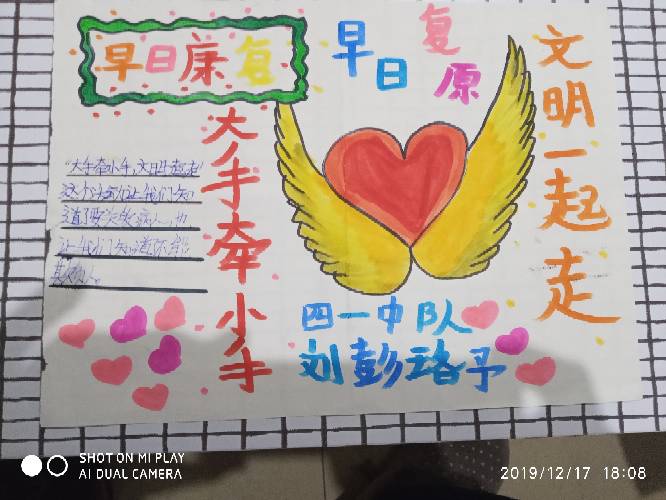 早日康复
早日
复原
文明一起走
大手牵小手
"大手牵小手,文明一起走"
这个活动让我们知
道了要关爱病人,也
让我们知道不能
欺负人。
四一中队
刘彭珞予
SHOT ON MI PLAY
AI DUAL CAMERA
2019/12/17 18:08